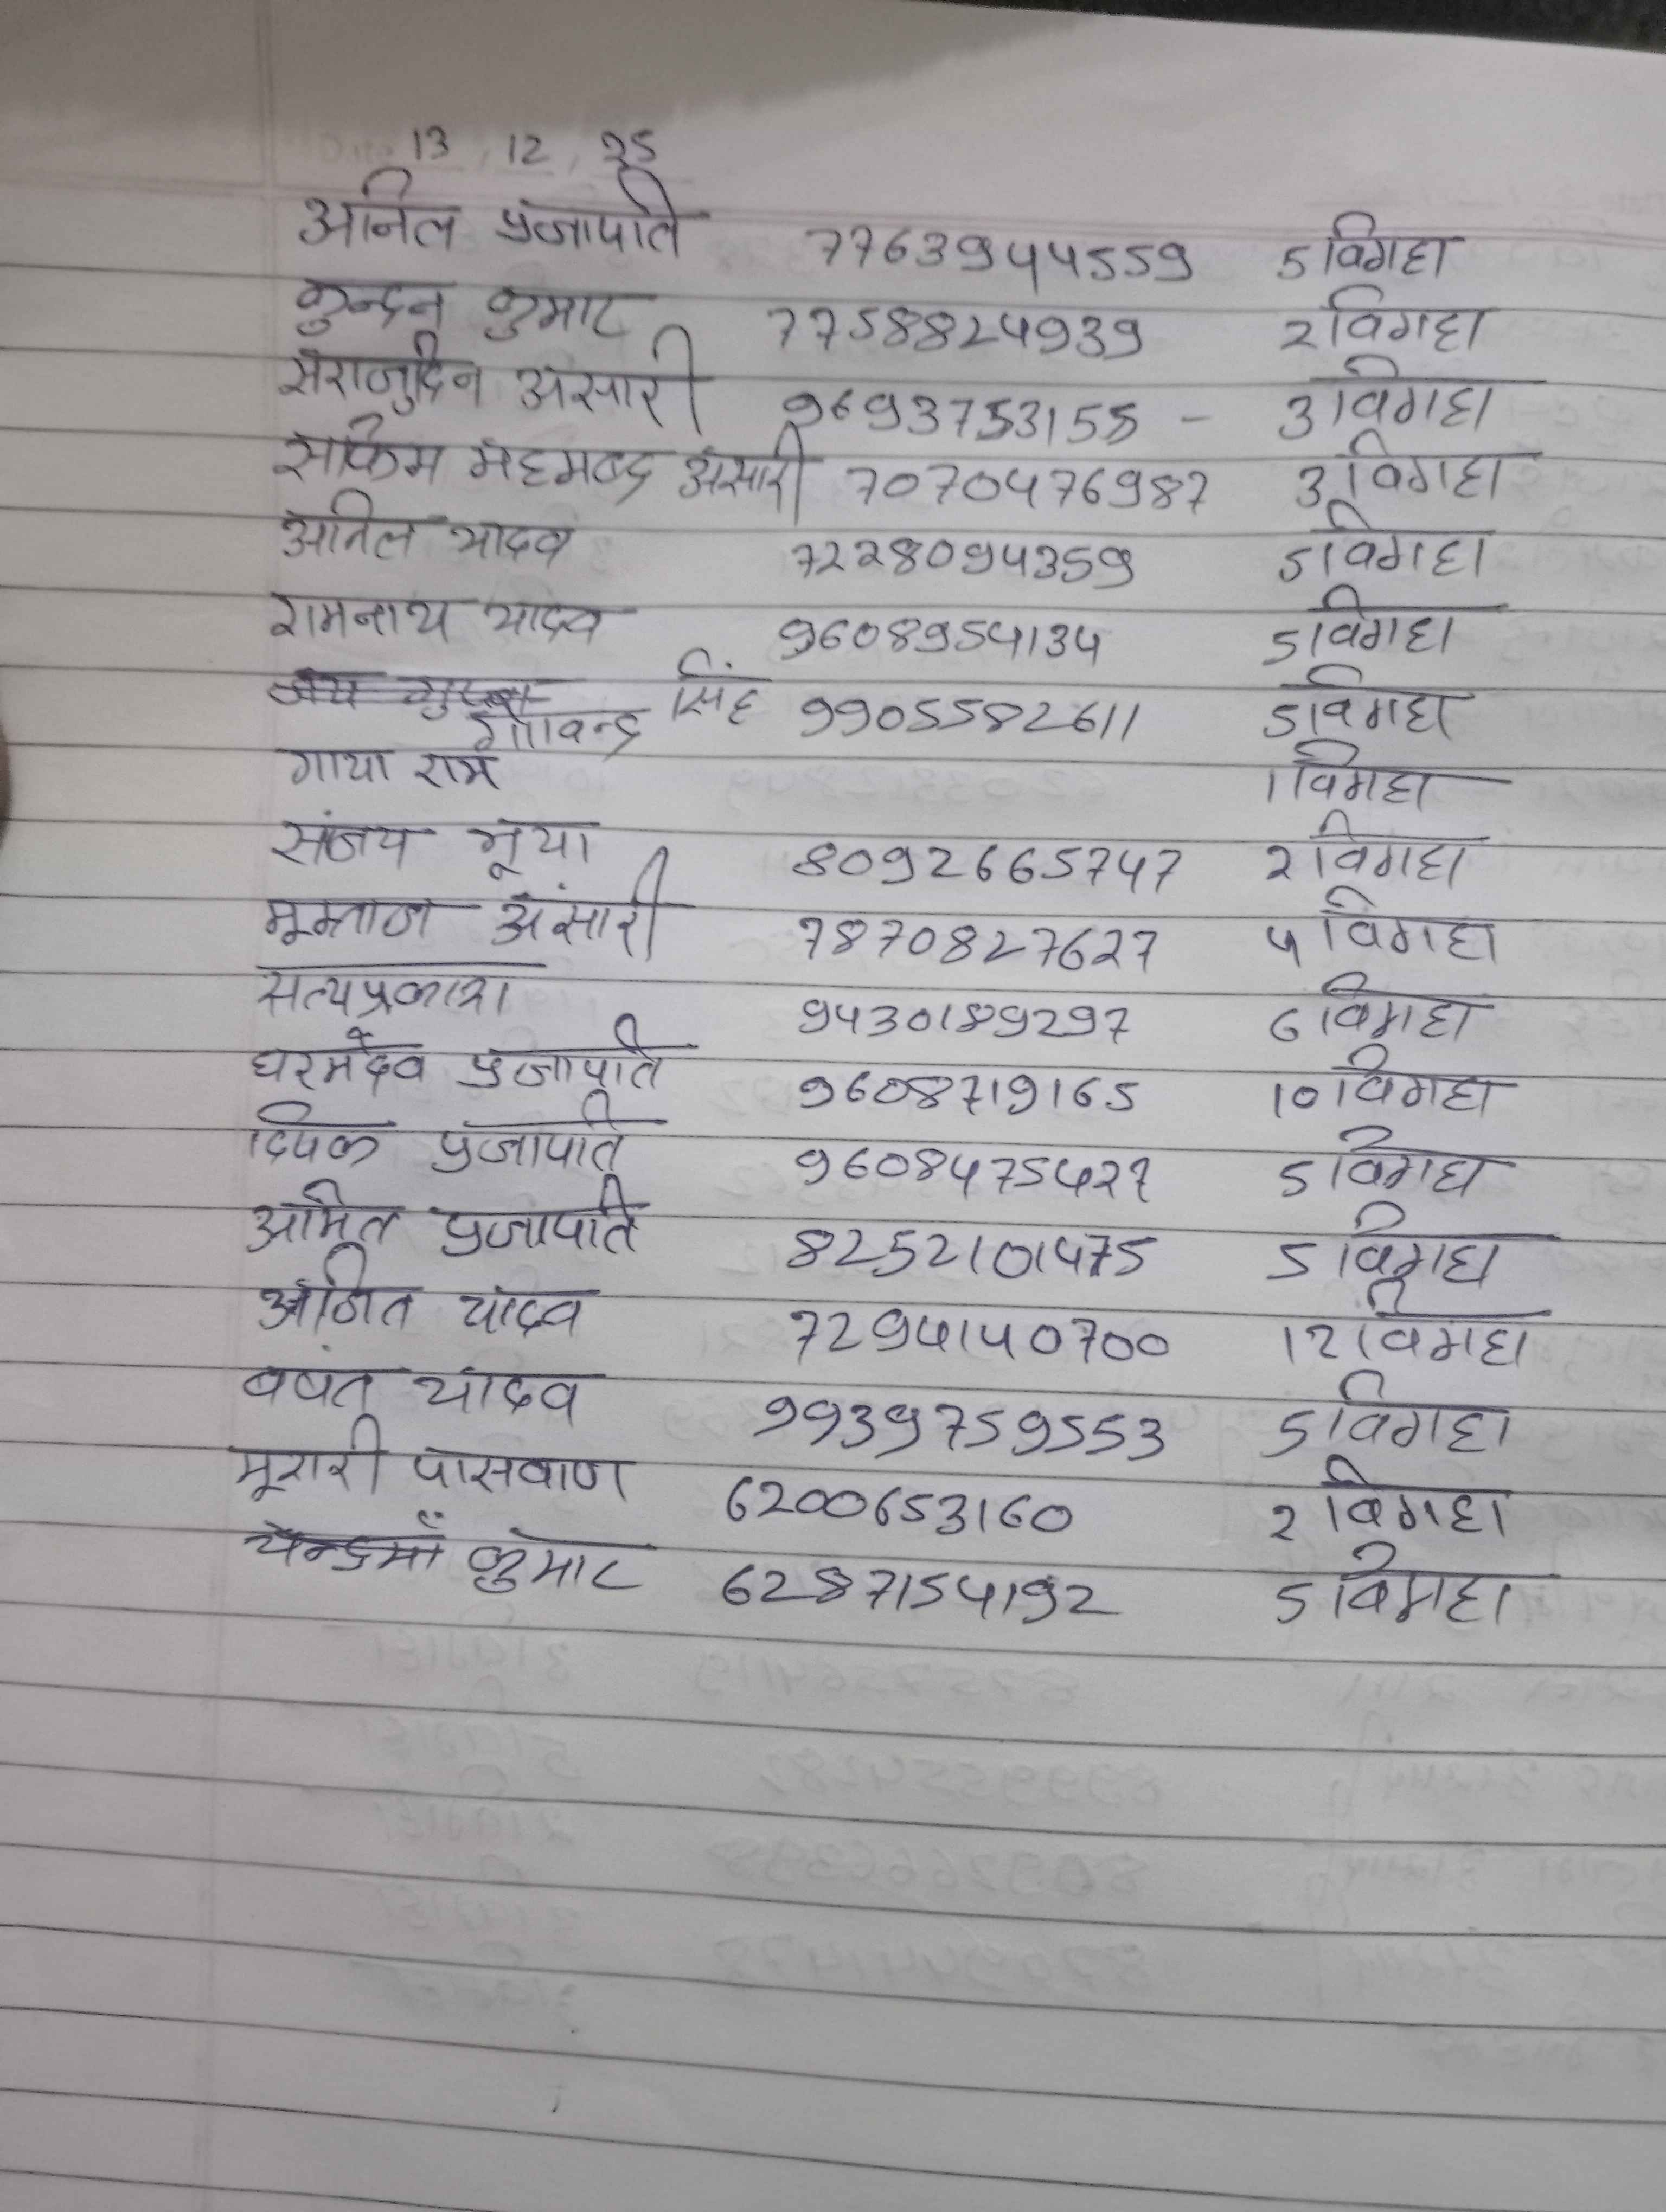 13 12 25
अनिल प्रजापति 7763944559 5 विगहा
कुन्दन कुमार 7758824939 2 विगहा
सराजुदिन अंसारी 9693753155 - 3 विगहा
सफिम मेहमब्द अंसारी 7070476987 3 विगहा
अनिल यादव 7228094359 5 विगहा
रामनाथ यादव 9608954134 5 विगहा
गोविन्द्र सिंह 9905582611 5 विगहा
गाया राम 1 विगहा
संजय भूया 8092665747 2 विगहा
मूमताज अंसारी 7870827627 5 विगहा
सत्यप्रकाश 9430189297 6 विगहा
धरमदेव प्रजापति 9608719165 10 विगहा
दिपक प्रजापति 9608475427 5 विगहा
अमित प्रजापति 8252101475 5 विगहा
अजित यादव 7294140700 12 विगहा
यादव 9939759553 5 विगहा
मूरारी पासवाण 6200653160 2 विगहा
चन्द्रमाँ कुमार 6287154192 5 विगहा